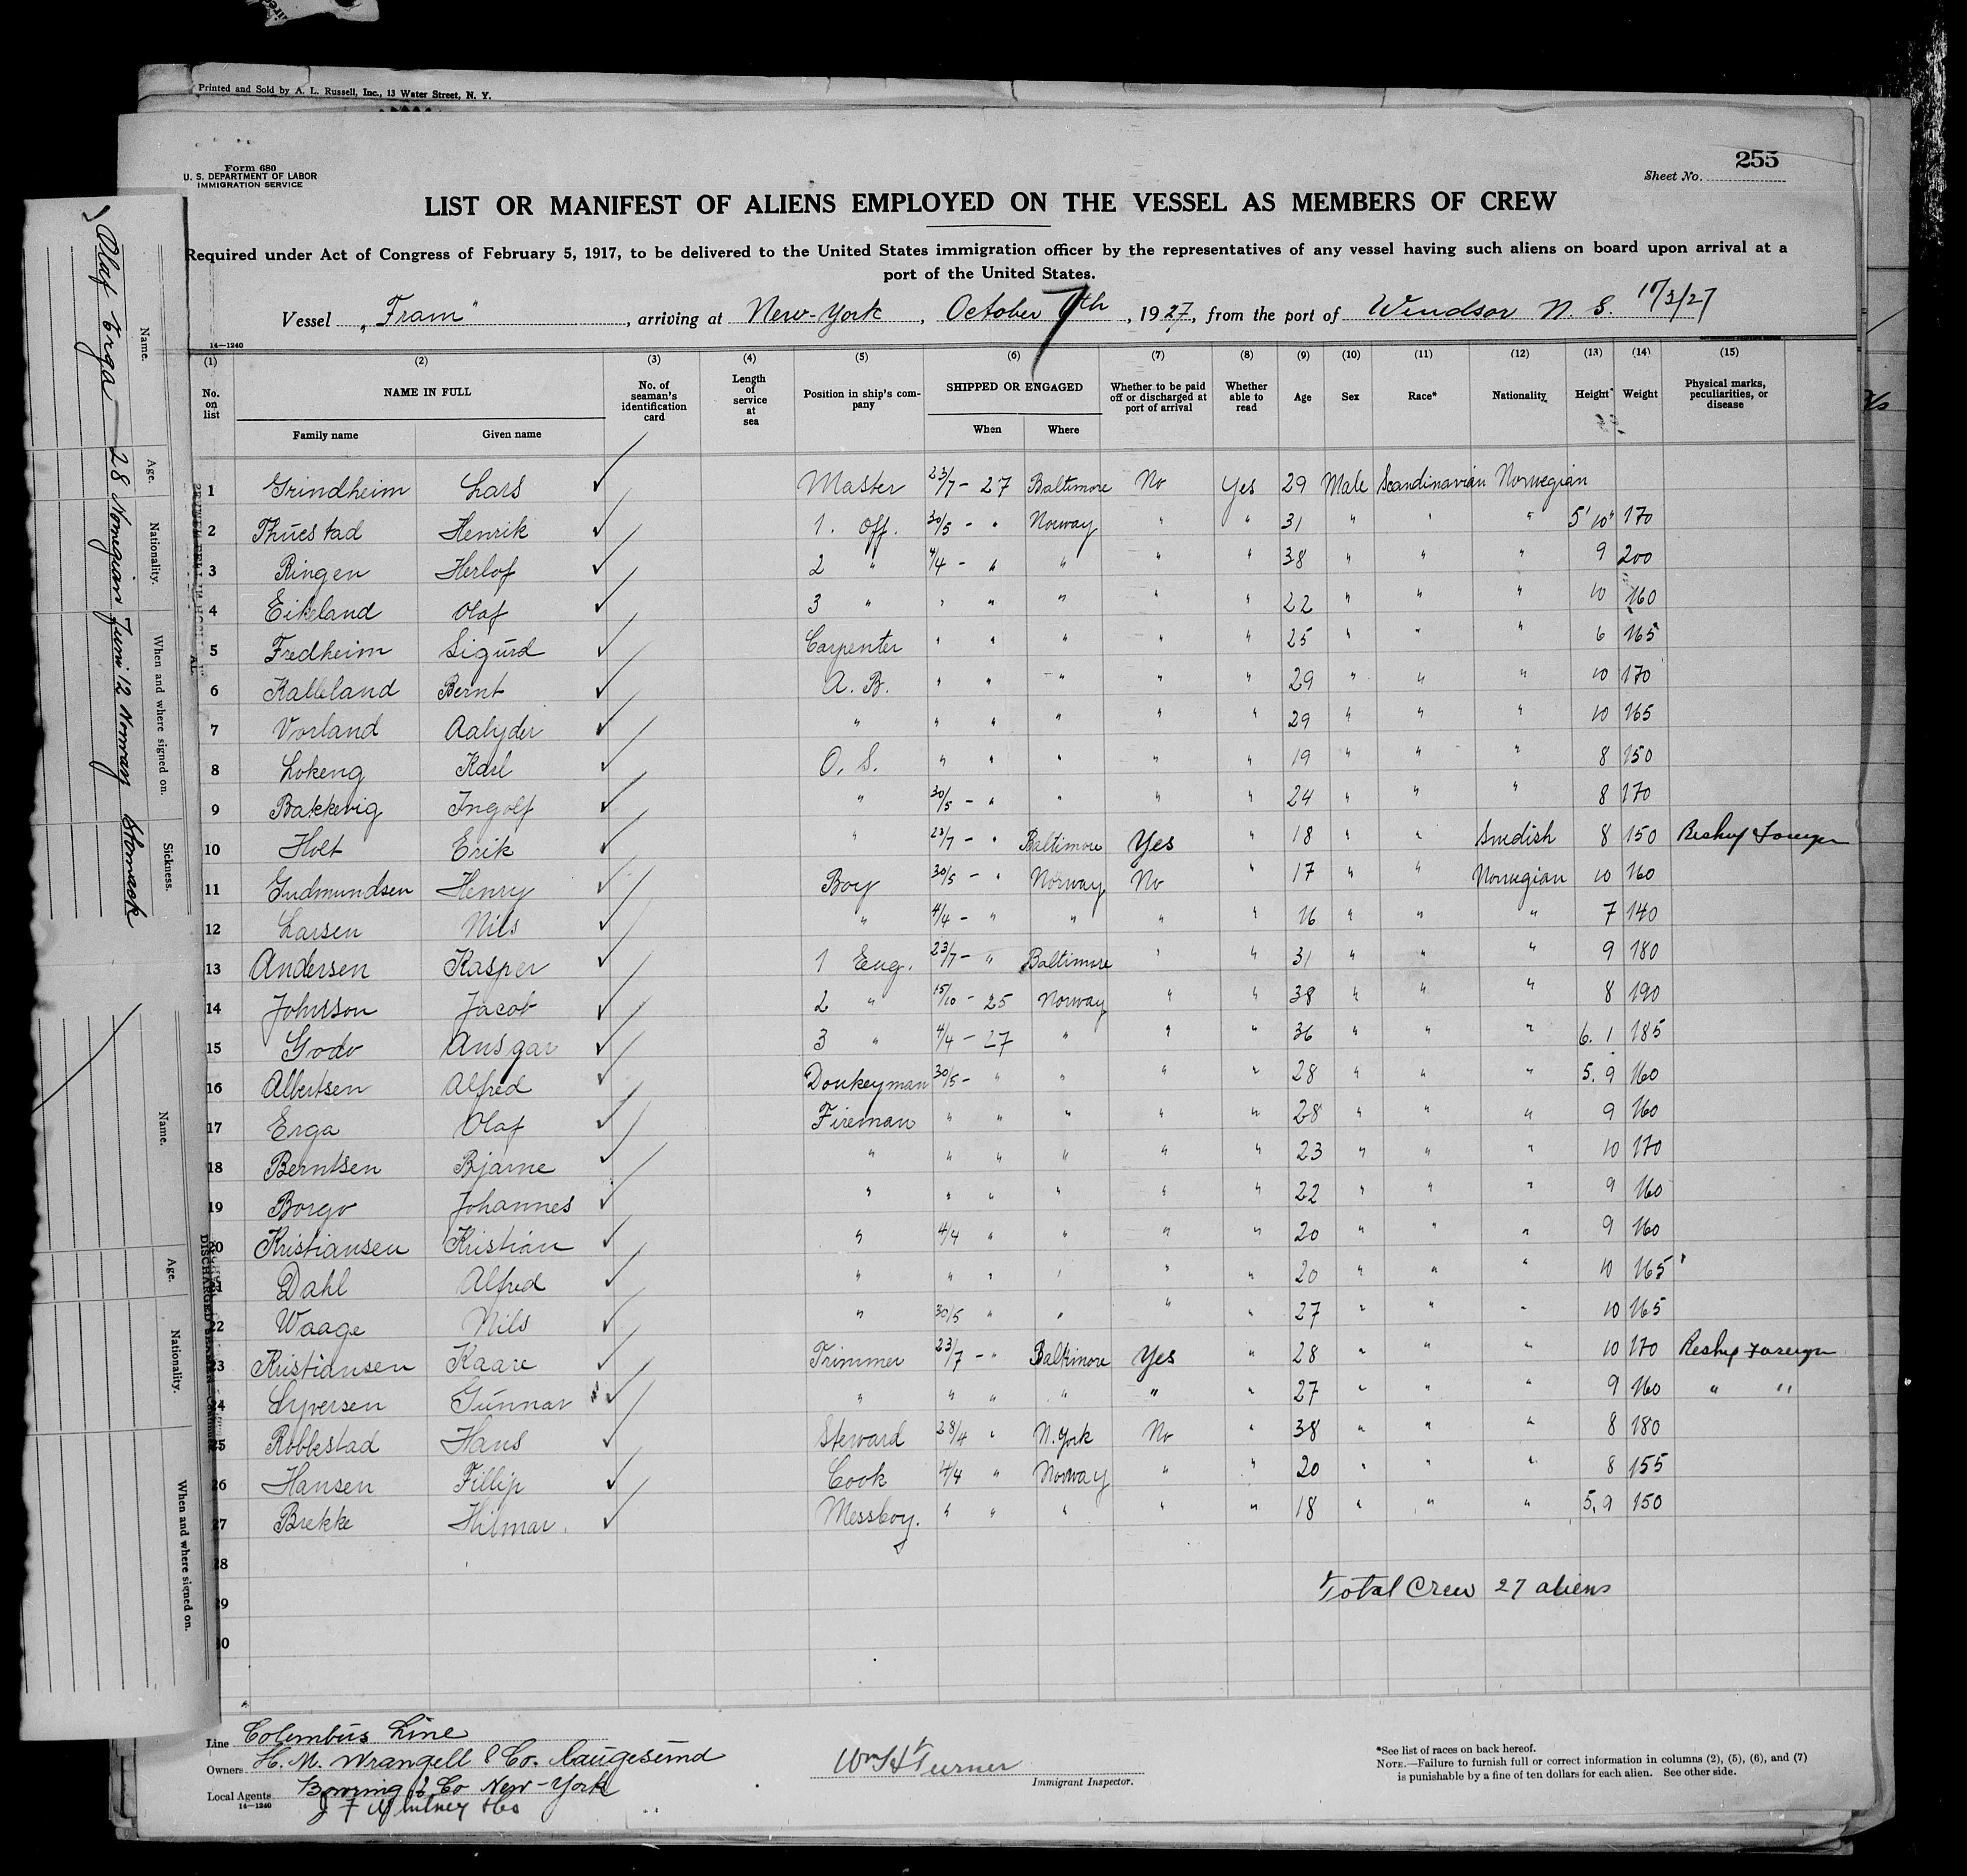 Printed and Sold by A. L. Russell, Inc., 13 Water Street, N. Y.
255
Form 680
U. S. DEPARTMENT OF LABOR
IMMIGRATION SERVICE
Sheet No.
LIST OR MANIFEST OF ALIENS EMPLOYED ON THE VESSEL AS MEMBERS OF CREW
Required under Act of Congress of February 5, 1917, to be delivered to the United States immigration officer by the representatives of any vessel having such aliens on board upon arrival at a
port of the United States.
Vessel „Fram", arriving at New-York, October 7th, 1927, from the port of Windsor N. S.
14—1240
(1) (2) (3) (4) (5) (6) (7) (8) (9) (10) (11) (12) (13) (14) (15)
No. on list NAME IN FULL No. of seaman's identification card Length of service at sea Position in ship's company SHIPPED OR ENGAGED Whether to be paid off or discharged at port of arrival Whether able to read Age Sex Race* Nationality Height Weight Physical marks, peculiarities, or disease
Family name Given name When Where
1 Grindheim Lars Master 23/7 - 27 Baltimore No Yes 29 Male Scandinavian Norwegian
2 Thuestad Henrik 1. Off. 30/5 - " Norway " " 31 " " " 5' 10" 170
3 Ringen Herlof 2 " 4/4 - " " " " 38 " " " 9 200
4 Eikeland Olaf 3 " " " " " " 22 " " " 10 160
5 Fredheim Sigurd Carpenter " " " " " 25 " " " 6 165
6 Kalleland Bernt A. B. " " " " " 29 " " " 10 170
7 Vorland " " " " " " 29 " " " 10 165
8 Lokeng Karl O. S. " " " " " 19 " " " 8 150
9 Bakkevig Ingolf " 30/5 - " " " " 24 " " " 8 170
10 Holt Erik " 23/7 - " Baltimore Yes " 18 " " Swedish 8 150 Reship Foreign
11 Gudmundsen Henry Boy 30/5 - " Norway No " 17 " " Norwegian 10 160
12 Larsen Nils " 4/4 - " " " " 16 " " " 7 140
13 Andersen Kasper 1 Eng. 23/7 - " Baltimore " " 31 " " " 9 180
14 Johnson Jacob 2 " 15/10 - 25 Norway " " 38 " " " 8 190
15 Godo Ansgar 3 " 4/4 - 27 " " " 36 " " " 6. 1 185
16 Albertsen Alfred Donkeyman 30/5 - " " " " 28 " " " 5. 9 160
17 Erga Olaf Fireman " " " " " 28 " " " 9 160
18 Berntsen Bjarne " " " " " " 23 " " " 10 170
19 Borgo Johannes " " " " " " 22 " " " 9 160
20 Kristiansen Kristian " 4/4 " " " " 20 " " " 9 160
21 Dahl Alfred " " " " " " 20 " " " 10 165
22 Waage Nils " 30/5 " " " " 27 " " " 10 165
23 Kristiansen Kaare Trimmer 23/7 - " Baltimore Yes " 28 " " " 10 170 Reship Foreign
24 Syversen Gunnar " " " " " " 27 " " " 9 160 " "
25 Robbestad Hans Steward 28/4 " N. York No " 38 " " " 8 180
26 Hansen Fillip Cook 4/4 " Norway " " 20 " " " 8 155
27 Brekke Hilmar. Messboy. " " " " " 18 " " " 5. 9 150
28
29
30
Total Crew 27 aliens
Line Columbus Line
Owners H. M. Wrangell & Co. Haugesund
Local Agents Bowring & Co New-York
J F Whitney & Co
14—1240
Wm H Turner
Immigrant Inspector.
*See list of races on back hereof.
NOTE.—Failure to furnish full or correct information in columns (2), (5), (6), and (7)
is punishable by a fine of ten dollars for each alien. See other side.
Name. Age. Nationality. When and where signed on. Sickness.
Olaf Erga 28 Norwegian Juni 12 Norway Stomack
Name. Age. Nationality. When and where signed on.